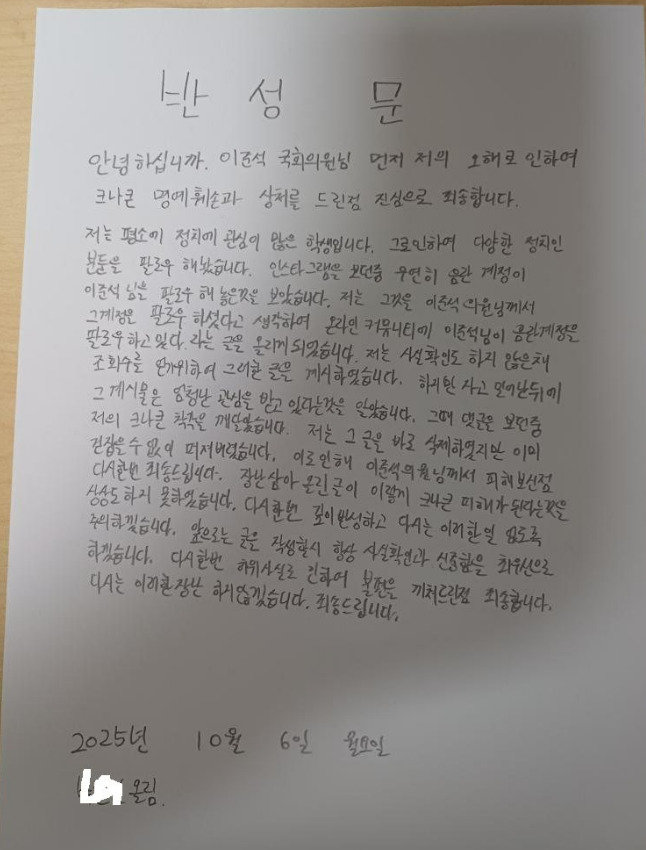 반 성 문
안녕하십니까. 이준석 국회의원님 먼저 저의 오해로 인하여
크나큰 명예훼손과 상처를 드린점 진심으로 죄송합니다.
저는 평소에 정치에 관심이 많은 학생입니다. 그로인하여 다양한 정치인
분들을 팔로우 해놨습니다. 인스타그램을 보던중 우연히 음란 계정이
이준석 님을 팔로우 해 놓은것을 보았습니다. 저는 그것을 이준석 의원님께서
그계정을 팔로우 하셨다고 생각하여 온라인 커뮤니티에 이준석님이 음란계정을
팔로우하고 있다. 라는 글을 올리게 되었습니다. 저는 사실확인도 하지 않은채
조회수를 위하여 그러한 글을 게시하였습니다. 하지만 사고 일어난뒤에
그 게시물은 엄청난 관심을 받고 있다는것을 알았습니다. 그때 댓글을 보던중
저의 크나큰 착각을 깨달았습니다. 저는 그 글을 바로 삭제하였지만 이미
걷잡을 수 없이 퍼져버렸습니다. 이로인해 이준석의원님께서 피해보신점
다시한번 죄송드립니다. 장난삼아 올린글이 이렇게 크나큰 피해가 된다는것을
상상도 하지 못하였습니다. 다시한번 깊이반성하고 다시는 이러한일 없도록
주의하겠습니다. 앞으로는 글을 작성할시 항상 사실확인과 신중함을 최우선으로
하겠습니다. 다시한번 허위사실로 인하여 불편을 끼쳐드린점 죄송합니다.
다시는 이러한장난 하지않겠습니다. 죄송드립니다.
2025년 10월 6일 월요일
올림.